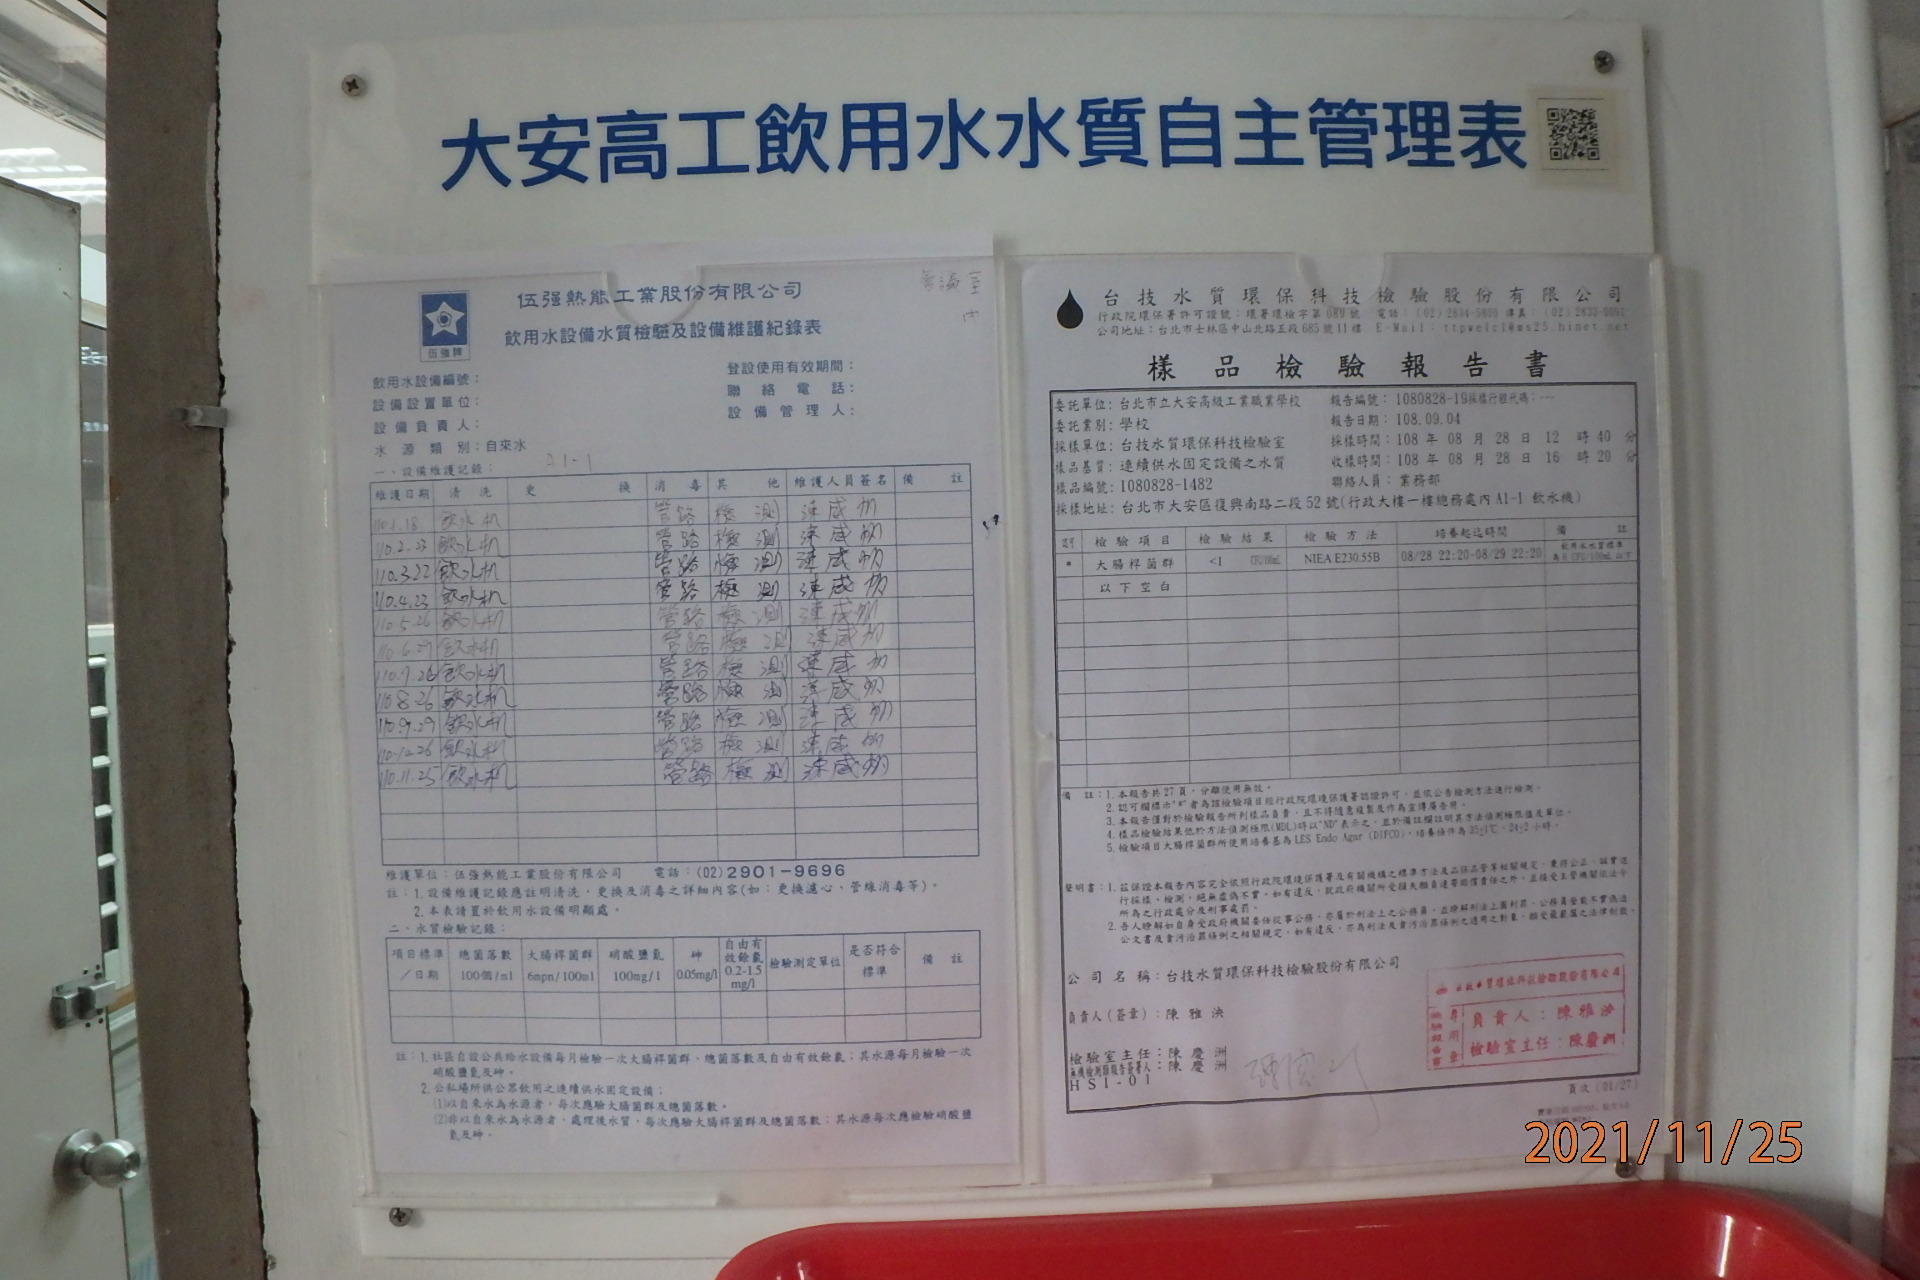 大安高工飲用水水質自主管理表
伍強熱能工業股份有限公司
飲用水設備水質檢驗及設備維護紀錄表
伍強牌
飲用水設備編號：
設備設置單位：
設備負責人：
水源類別：自來水
登設使用有效期間：
聯絡電話：
設備管理人：
一、設備維護記錄：
A1-1
維護日期 清洗 更換 消毒 其他 維護人員簽名 備註
110.1.18 飲水机 管路 檢測
110.2.23 飲水机 管路 檢測
110.3.22 飲水机 管路 檢測
110.4.23 飲水机 管路 檢測
110.5.26 飲水机 管路 檢測
110.6.29 飲水机 管路 檢測
110.7.26 飲水机 管路 檢測
110.8.26 飲水机 管路 檢測
110.9.29 飲水机 管路 檢測
110.10.26 飲水机 管路 檢測
110.11.25 飲水机 管路 檢測
維護單位：伍強熱能工業股份有限公司 電話：(02)2901-9696
註：1.設備維護記錄應註明清洗，更換及消毒之詳細內容(如：更換濾心、管線消毒等)。
2.本表請置於飲用水設備明顯處。
二、水質檢驗記錄：
項目標準/日期 總菌落數100個/ml 大腸桿菌群6mpn/100ml 硝酸鹽氮100mg/l 砷0.05mg/l 自由有效餘氯0.2-1.5mg/l 檢驗測定單位 是否符合標準 備註
註：1.社區自設公共給水設備每月檢驗一次大腸桿菌群、總菌落數及自由有效餘氯；其水源每月檢驗一次
硝酸鹽氮及砷。
2.公私場所供公眾飲用之連續供水固定設備：
(1)以自來水為水源者，每次應驗大腸桿菌群及總菌落數。
(2)非以自來水為水源者，處理後水質，每次應驗大腸桿菌群及總菌落數；其水源每次應檢驗硝酸鹽
氮及砷。
台技水質環保科技檢驗股份有限公司
行政院環保署許可證號：環署環檢字第089號 電話：(02)2834-5800
公司地址：台北市士林區中山北路五段685號11樓 E-Mail：ttpwelcl@ms25.hinet.net
樣品檢驗報告書
委託單位：台北市立大安高級工業職業學校 報告編號：1080828-19採樣行程代碼：---
委託業別：學校 報告日期：108.09.04
採樣單位：台技水質環保科技檢驗室 採樣時間：108 年 08 月 28 日 12 時 40 分
樣品基質：連續供水固定設備之水質 收樣時間：108 年 08 月 28 日 16 時 20 分
樣品編號：1080828-1482 聯絡人員：業務部
採樣地址：台北市大安區復興南路二段52號(行政大樓一樓總務處內 A1-1 飲水機)
認可 檢驗項目 檢驗結果 檢驗方法 培養起迄時間 備註
* 大腸桿菌群 <1 CFU/100mL NIEA E230.55B 08/28 22:20-08/29 22:20 飲用水水質標準為6 CFU/100mL 以下
以下空白
備註：1.本報告共27頁，分離使用無效。
2.認可欄標示"*"者為該檢驗項目經行政院環境保護署認證許可，並依公告檢測方法進行檢測。
3.本報告僅對於檢驗報告所列樣品負責，且不得隨意複製及作為宣傳廣告用。
4.樣品檢驗結果低於方法偵測極限(MDL)時以"ND"表示之，並於備註欄註明其方法偵測極限值及單位。
5.檢驗項目大腸桿菌群所使用培養基為LES Endo Agar (DIFCO)，培養條件為35±1℃，24±2小時。
聲明書：1.茲保證本報告內容完全依照行政院環境保護署及有關機構之標準方法及品保品管等相關規定，秉持公正、誠實進
行採樣、檢測，絕無虛偽不實，如有違反，就政府機關所受損失願負連帶賠償責任之外，並接受主管機關依法令
所為之行政處分及刑事處罰。
2.吾人瞭解如自身受政府機關委任從事公務，亦屬於刑法上之公務員，並瞭解刑法上圖利罪、公務員登載不實偽造
公文書及貪污治罪條例之相關規定，如有違反，亦為刑法及貪污治罪條例之適用之對象，願受最嚴厲之法律制裁。
公司名稱：台技水質環保科技檢驗股份有限公司
負責人(簽章)：陳雅泱
檢驗室主任：陳慶洲
無機檢測類報告簽署人：陳慶洲
HSI-01
台技水質環保科技檢驗股份有限公司
檢驗報告書專用章
負責人：陳雅泱
檢驗室主任：陳慶洲
頁次(01/27)
2021/11/25